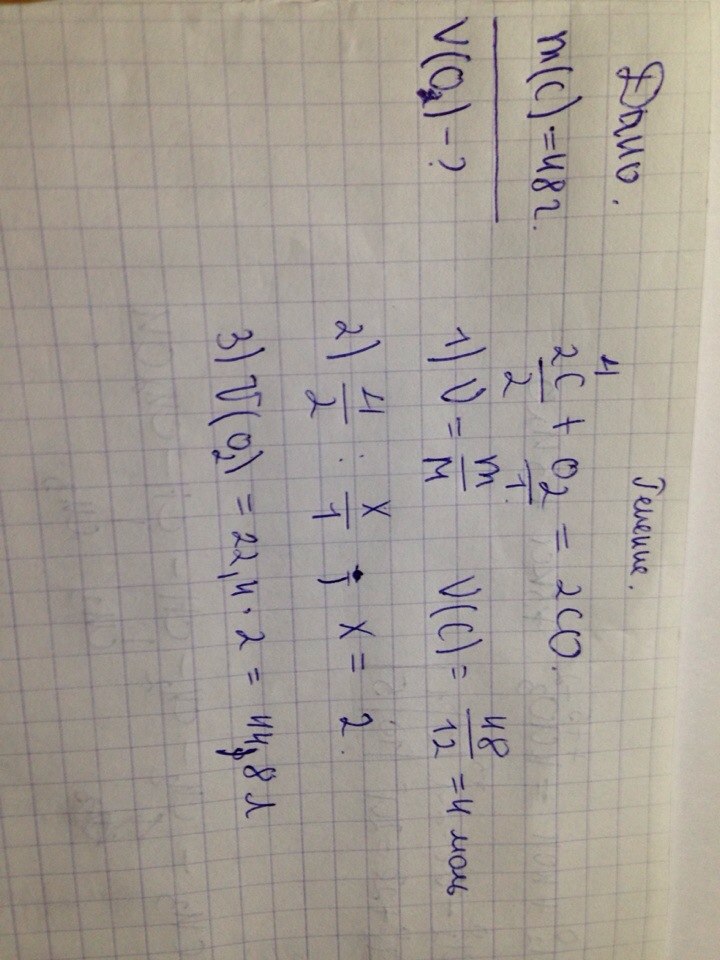 Дано.
m(C)=48г.
V(O2)-?
Решение.
4
2C + O2 = 2CO.
2 1
1) ν = m/M ν(C) = 48/12 = 4 моль
2) 4/2 : x/1 ; x = 2.
3) V(O2) = 22,4 · 2 = 44,8 л